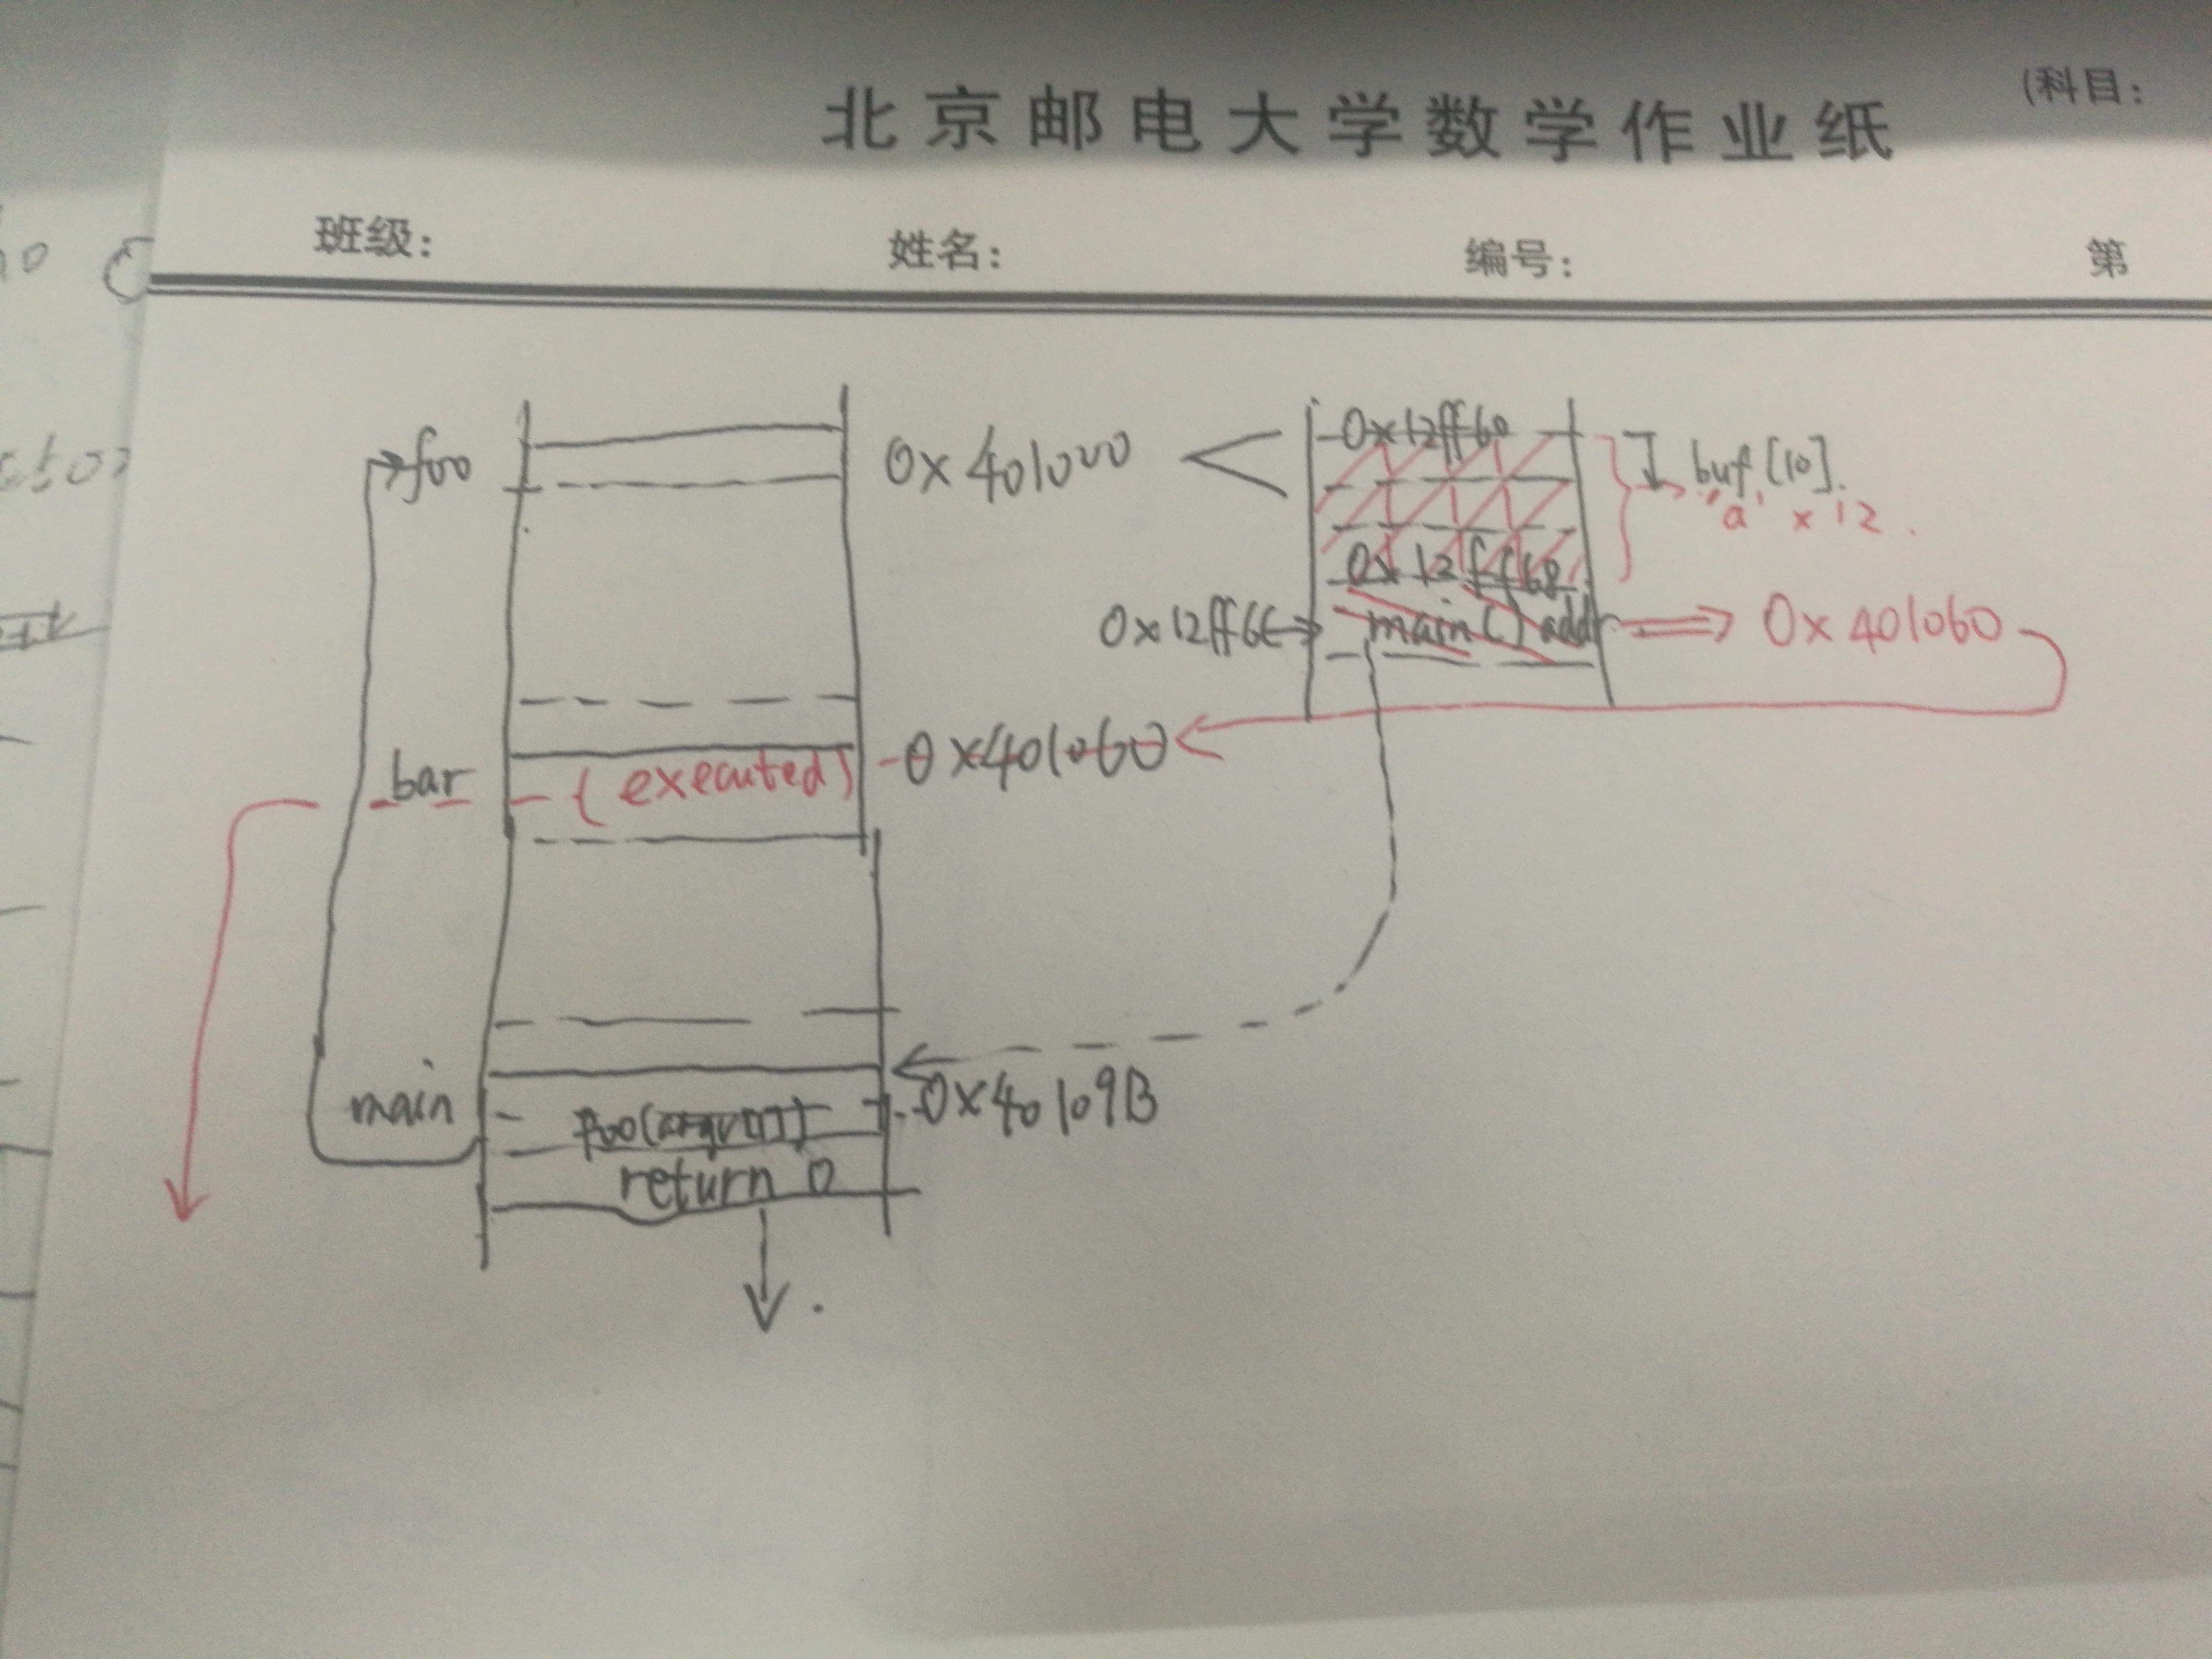 (科目:
北京邮电大学数学作业纸
班级: 姓名: 编号: 第
foo 0x401000 0x12ff60 buf[10].
'a' x 12.
0x12ff68
main() addr 0x401060
bar (executed) 0x401060
main foo(argv[1]) 0x40109B
return 0